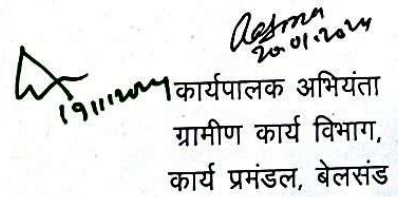 20.01.2024
19/1/2024
कार्यपालक अभियंता
ग्रामीण कार्य विभाग,
कार्य प्रमंडल, बेलसंड